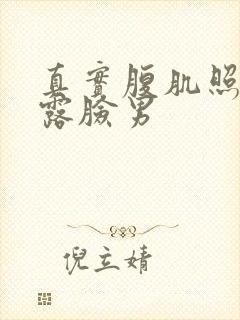 真實腹肌照
露臉男
倪立婧